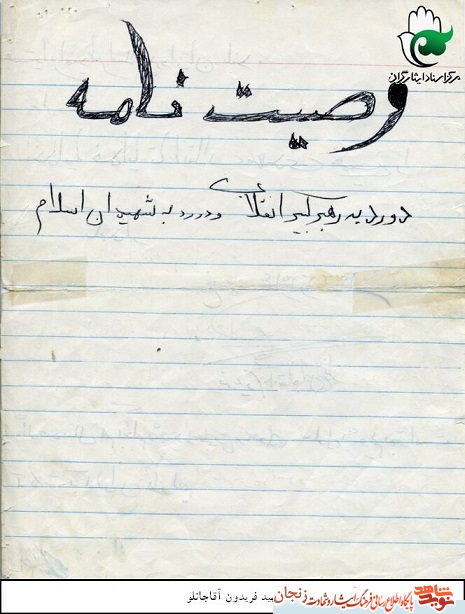 مرکز اسناد ایثارگران
وصیت نامه
درود به رهبر کبیر انقلاب و درود به شهیدان اسلام
نوید شاهد
پایگاه اطلاع رسانی فرهنگ ایثار و شهادت زنجان
فریدون آقاجانلو